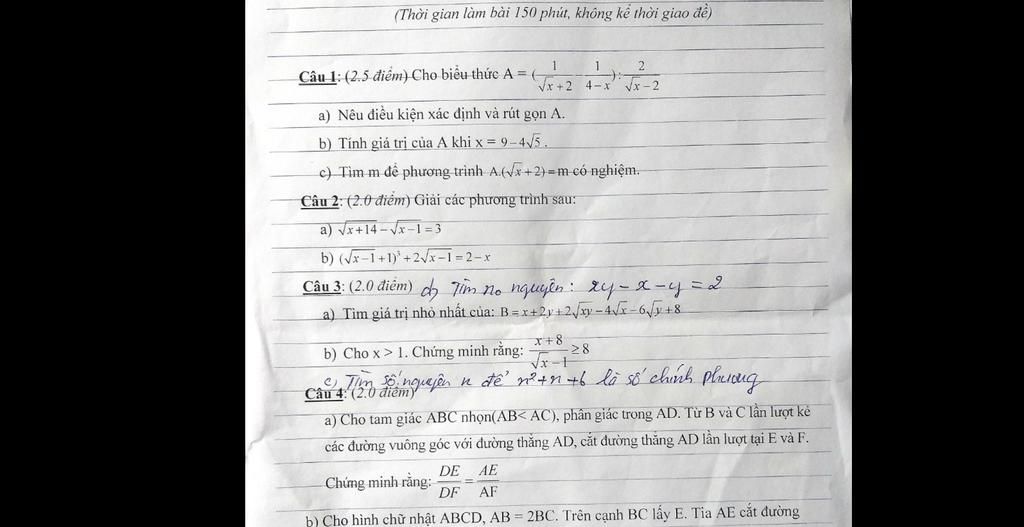 (Thời gian làm bài 150 phút, không kể thời giao đề)
Câu 1: (2.5 điểm) Cho biểu thức A = (1/(√x+2) − 1/(4−x)) : 2/(√x−2)
a) Nêu điều kiện xác định và rút gọn A.
b) Tính giá trị của A khi x = 9−4√5.
c) Tìm m để phương trình A.(√x+2)=m có nghiệm.
Câu 2: (2.0 điểm) Giải các phương trình sau:
a) √(x+14)−√(x−1)=3
b) (√(x−1)+1)³+2√(x−1)=2−x
Câu 3: (2.0 điểm) d) Tìm no nguyên: xy − x − y = 2
a) Tìm giá trị nhỏ nhất của: B=x+2y+2√(xy)−4√x−6√y+8
b) Cho x > 1. Chứng minh rằng: (x+8)/(√x−1) ≥8
c) Tìm số nguyên n để n²+n+6 là số chính phương
Câu 4: (2.0 điểm)
a) Cho tam giác ABC nhọn(AB< AC), phân giác trong AD. Từ B và C lần lượt kẻ
các đường vuông góc với đường thẳng AD, cắt đường thẳng AD lần lượt tại E và F.
Chứng minh rằng: DE/DF = AE/AF
b) Cho hình chữ nhật ABCD, AB = 2BC. Trên cạnh BC lấy E. Tia AE cắt đường